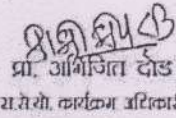 प्रा. अभिजित दौंड
रा.से.यो. कार्यक्रम अधिकारी